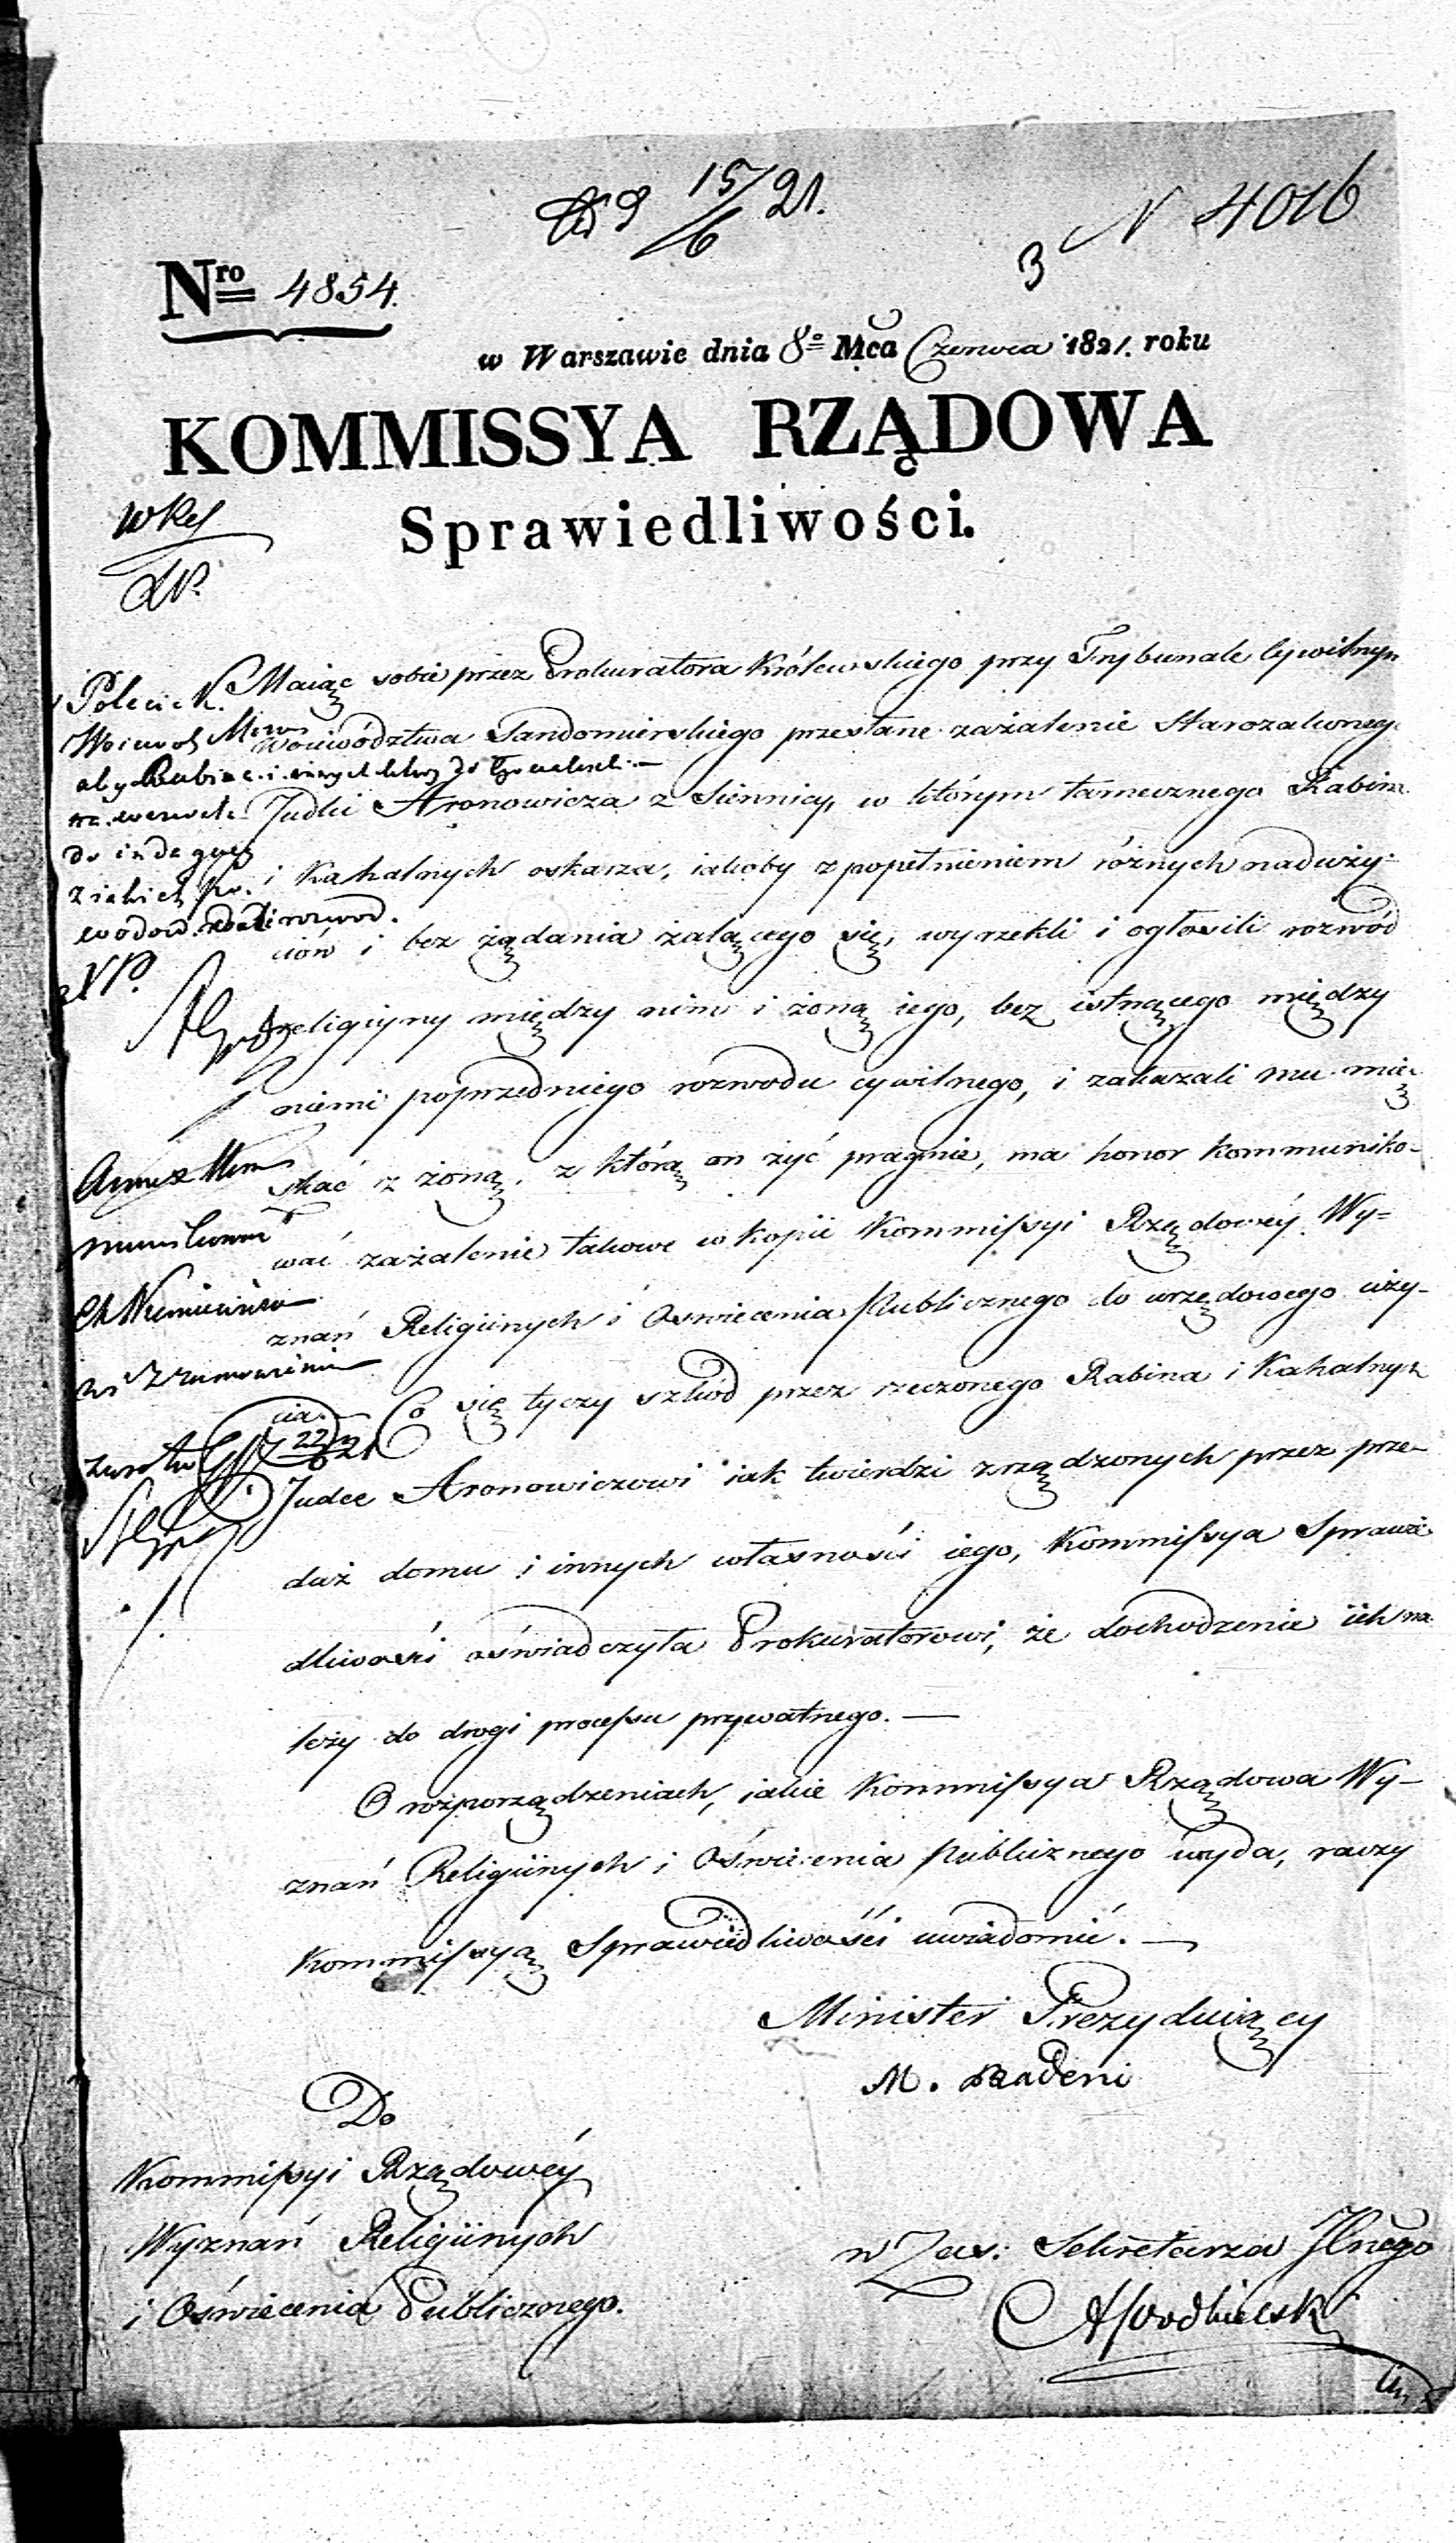 15/6 21.
N 4016
3
Nro 4854.
w Warszawie dnia 8o Mca Czerwca 1821. roku
KOMMISSYA RZĄDOWA
Sprawiedliwości.
Maiąc sobie przez Prokuratora Królewskiego przy Trybunale Cywilnym
Woiewództwa Sandomierskiego przesłane zażalenie Starozakonnego
Judki Aronowicza z Siennicy, w którym tamecznego Rabina
i Kahalnych oskarza, iakoby z popełnieniem różnych naduży-
ciów i bez żądania żalącego się, wyrzekli i ogłosili rozwód
religiyny między nim i żoną iego, bez istnącego między
niemi poprzedniego rozwodu cywilnego, i zakazali mu mię-
szkać z żoną, z którą on żyć pragnie, ma honor kommuniko-
wać zażalenie takowe w kopii Kommissyi Rządowéy Wy=
znań Religiinych i Oswiecenia Publicznego do urzędowego uży-
cia. Co się tyczy szkód przez rzeczonego Rabina i Kahalnych
Judce Aronowiczowi iak twierdzi zrządzonych przez prze-
daż domu i innych własności iego, Kommissya Sprawie-
dliwości oświadczyła Prokuratorowi, że dochodzenie ich na-
leży do drogi processu prywatnego. —
O rozporządzeniach, iakie Kommissya Rządowa Wy-
znań Religiinych i Oświecenia Publicznego wyda, raczy
Kommissyą Sprawiedliwości uwiadomić. —
Minister Prezyduiący
M. Badeni
Do
Kommissyi Rządowéy
Wyznań Religiinych
i Oświecenia Publicznego.
w Zas: Sekretarza Jlnego
Polecić K.
Woiewodz
aby Rabina i innych
do indagacyi
z iakich po-
wodów dali rozwod.
22/6 21